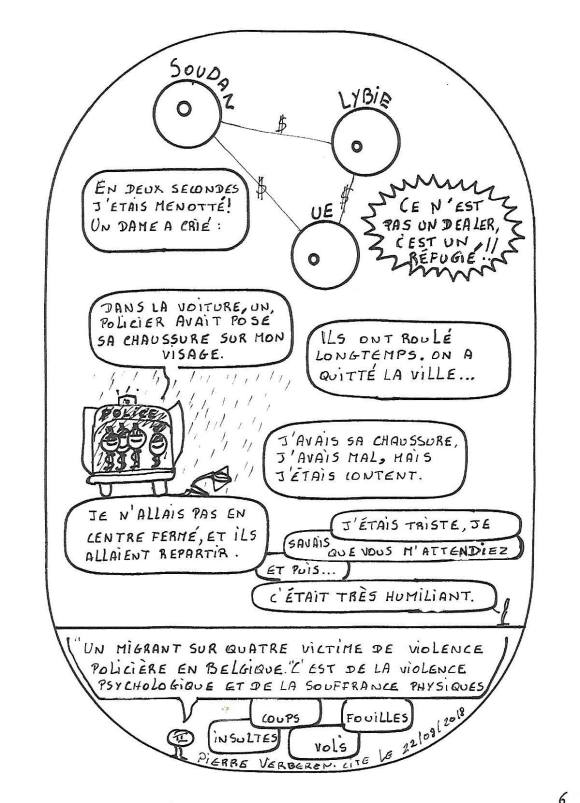 SOUDAN
LYBIE
$
$
$
UE
EN DEUX SECONDES
J'ETAIS MENOTTÉ!
UN DAME A CRIÉ :
CE N'EST
PAS UN DEALER,
C'EST UN
RÉFUGIÉ !!
DANS LA VOITURE, UN,
POLICIER AVAIT POSÉ
SA CHAUSSURE SUR MON
VISAGE.
ILS ONT ROULÉ
LONGTEMPS. ON A
QUITTÉ LA VILLE...
POLICE
J'AVAIS SA CHAUSSURE,
J'AVAIS MAL, MAIS
J'ÉTAIS CONTENT.
JE N'ALLAIS PAS EN
CENTRE FERMÉ, ET ILS
ALLAIENT REPARTIR.
J'ÉTAIS TRISTE, JE
SAVAIS QUE VOUS M'ATTENDIEZ
ET PUIS...
C'ÉTAIT TRÈS HUMILIANT.
"UN MIGRANT SUR QUATRE VICTIME DE VIOLENCE
POLICIÈRE EN BELGIQUE."C'EST DE LA VIOLENCE
PSYCHOLOGIQUE ET DE LA SOUFFRANCE PHYSIQUES
COUPS
FOUILLES
INSULTES
VOLS
PIERRE VERBEREN. LITE LE 22/08/2018
6